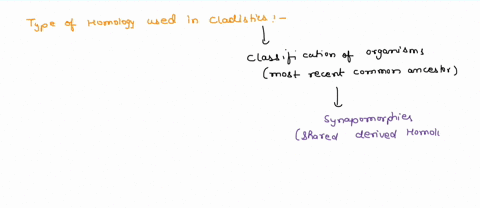 Type of Homology used in Cladistics :-
Classification of organisms
(most recent common ancestor)
Synapomorphies
(shared derived Homol